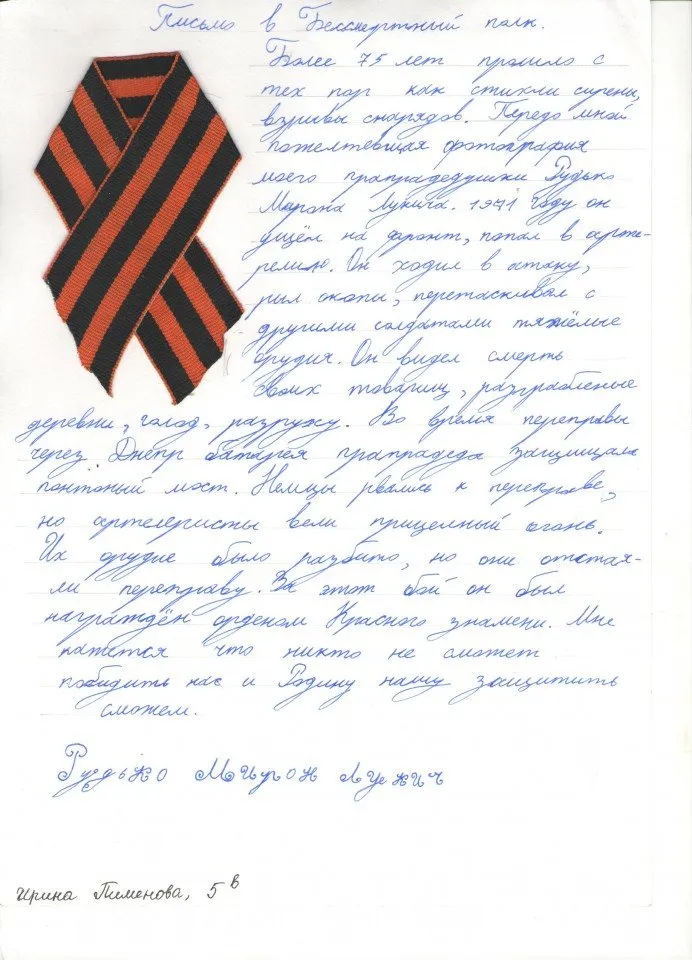 Письмо в Бессмертный полк.
Более 75 лет прошло с
тех пор как стихли сирены,
взрывы снарядов. Передо мной
пожелтевшая фотография
моего прапрадедушки Рудько
Марона Лукича. 1941 году он
ушёл на фронт, попал в арте-
релию. Он ходил в атаку,
рыл окопы, перетаскивал с
другими солдатами тяжёлые
орудия. Он видел смерть
своих товарищ, разграбленые
деревни, голод, разруху. Во время переправы
через Днепр батарея прапрадеда защищала
понтоный мост. Немцы рвались к переправе,
но артелеристы вели прицельный огонь.
Их орудие было разбито, но они отстоя-
ли переправу. За этот бой он был
награждён орденом Красного знамени. Мне
кажется что никто не сможет
победить нас и Родину нашу защитить
сможем.
Рудько Мирон Лукич
Ирина Пименова, 5 в